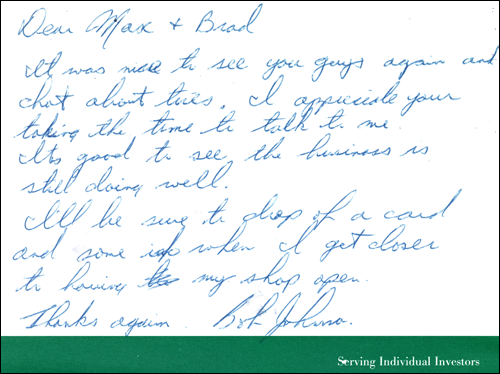 Dear Max + Brad
It was nice to see you guys again and
chat about tires. I appriciate your
taking the time to talk to me.
Its good to see the business is
still doing well.
I'll be sure to drop of a card
and some info when I get closer
to having my shop open.
Thanks again Bob Johnson.
Serving Individual Investors